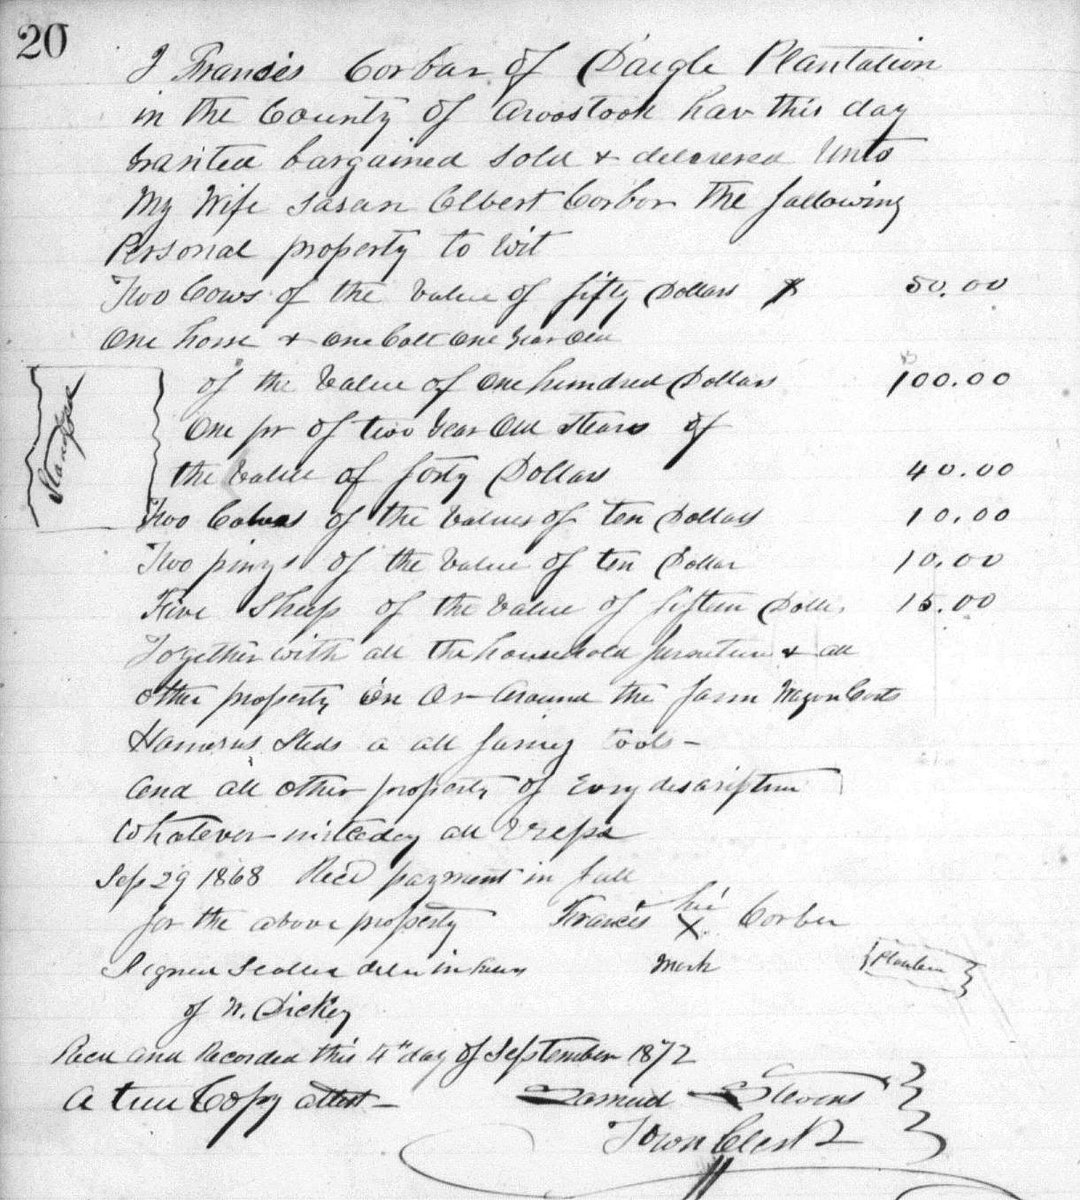 20
I Francis Corbar of Daigle Plantation
in the County of Aroostook hav this day
Granted bargained sold & delivered Unto
My Wife Susan Elbert Corbor the following
Personal property to wit
Two Cows of the value of fifty Dollars 50.00
One horse & one Colt one year old
of the value of one hundred Dollars 100.00
One pr of two year old stears of
the value of forty Dollars 40.00
Stamped
Two Calves of the values of ten Dollars 10.00
Two pings of the value of ten Dollar 10.00
Five Sheep of the value of fifteen Dolls. 15.00
Together with all the household furniture & all
other property in or around the farm Wagon Carts
Sleds a all tools -
and all other property of Evry description
Whatever
Sep 29 1868 Rec'd payment in full
for the above property Francis his X Corber
Signed Sealed
mark
of W. Dickey
Recd and Recorded this 4th day of September 1872
A true Copy attest - Samuel Stevens
Town Clerk